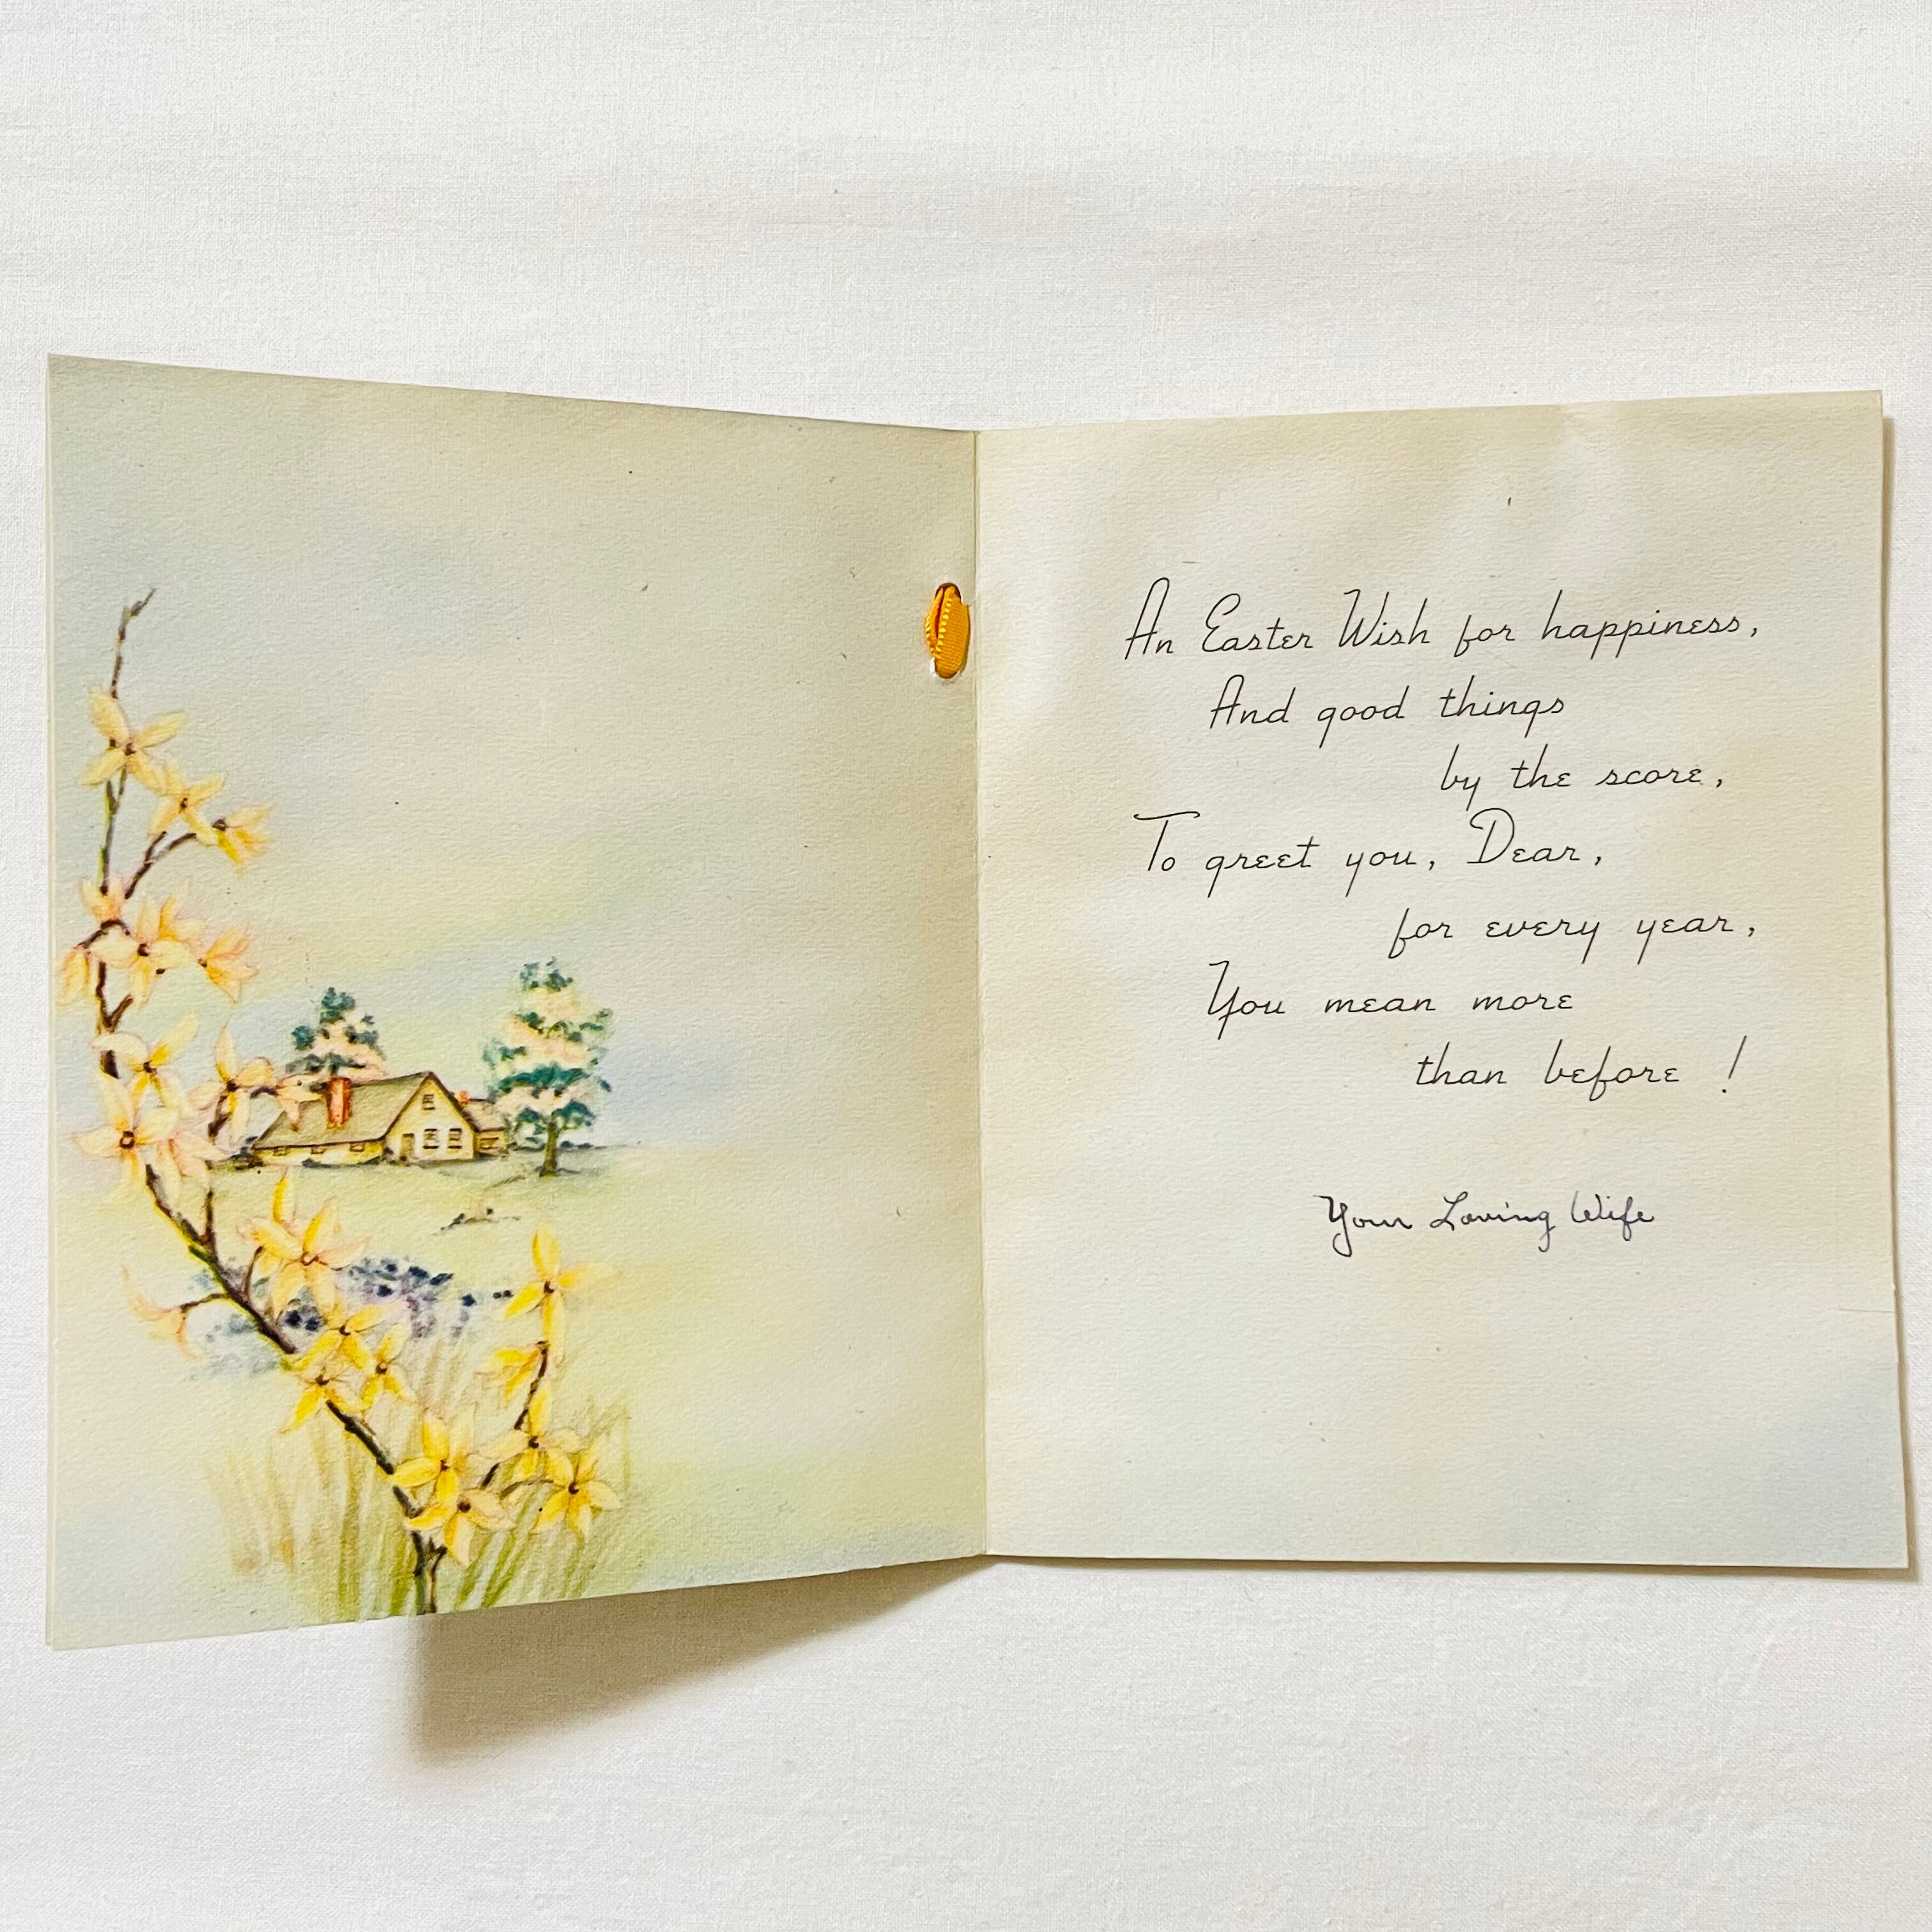 An Easter Wish for happiness,
And good things
by the score,
To greet you, Dear,
for every year,
You mean more
than before!
Your Loving Wife